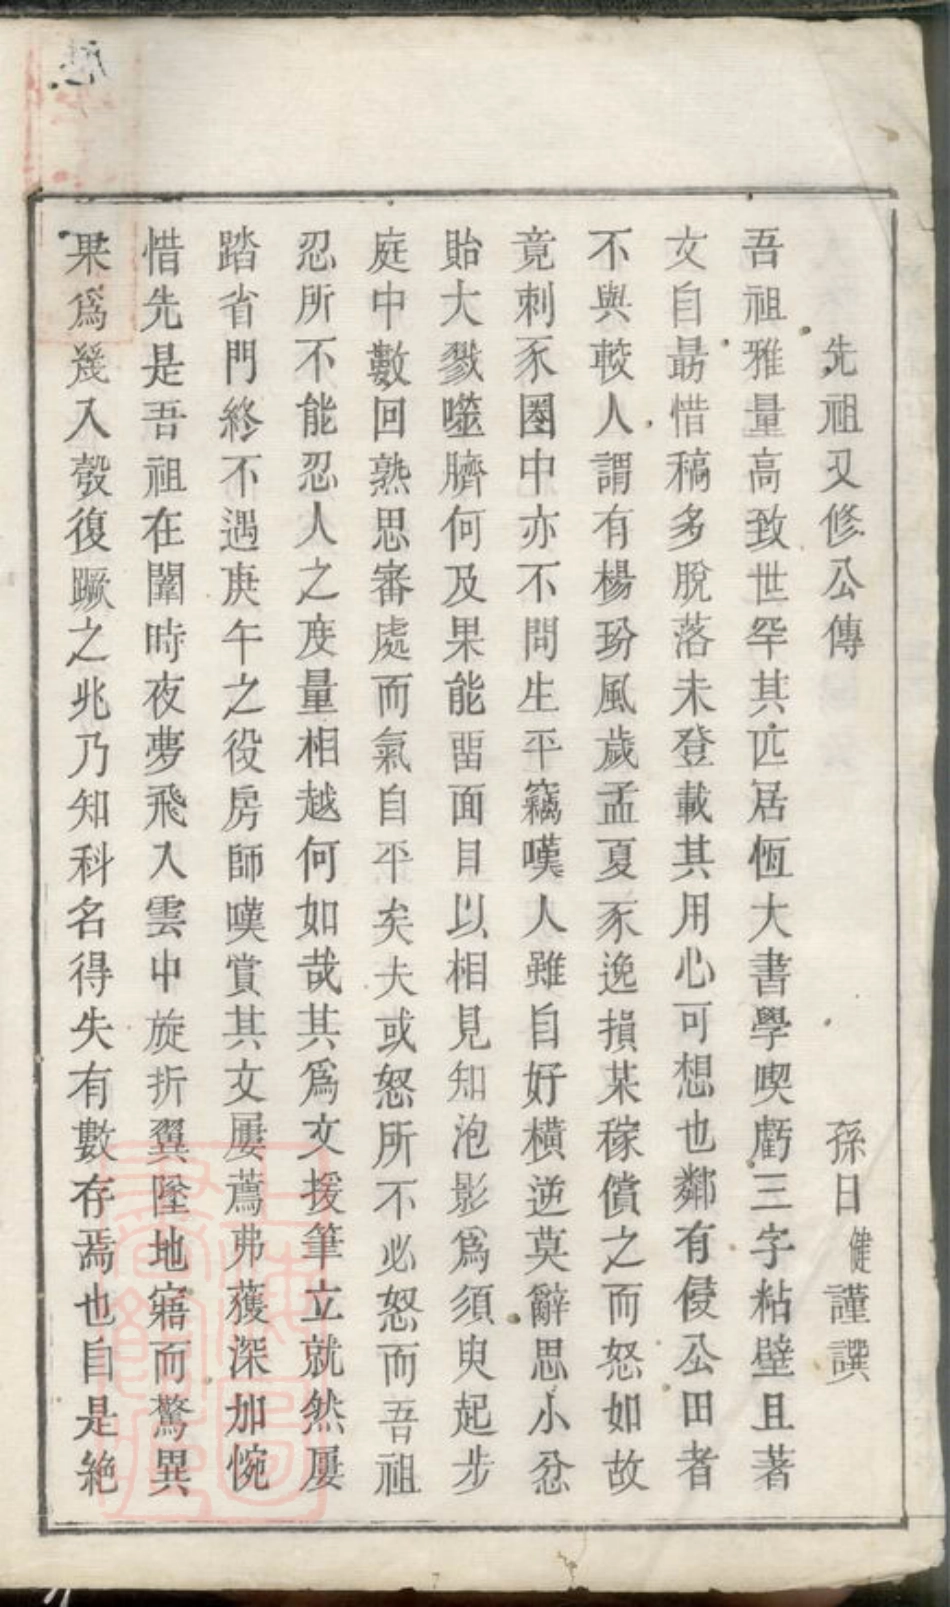 先祖又修公傳 孫日健謹譔
吾祖雅量高致世罕其匹居恆大書學喫虧三字粘壁且著
文自最惜稿多脫落未登載其用心可想也鄰有侵公田者
不與較人謂有楊玢風歲孟夏豕逸損某稼償之而怒如故
竟刺豕圈中亦不問生平竊嘆人雖自好橫逆莫辭思小忿
貽大戮噬臍何及果能畱面目以相見知泡影爲須臾起步
庭中數回熟思審處而氣自平矣夫或怒所不必怒而吾祖
忍所不能忍人之度量相越何如哉其爲文援筆立就然屢
踏省門終不遇庚午之役房師嘆賞其文屢薦弗獲深加惋
惜先是吾祖在闈時夜夢飛入雲中旋折翼墜地寤而驚異
果爲幾入彀復蹶之兆乃知科名得失有數存焉也自是絕